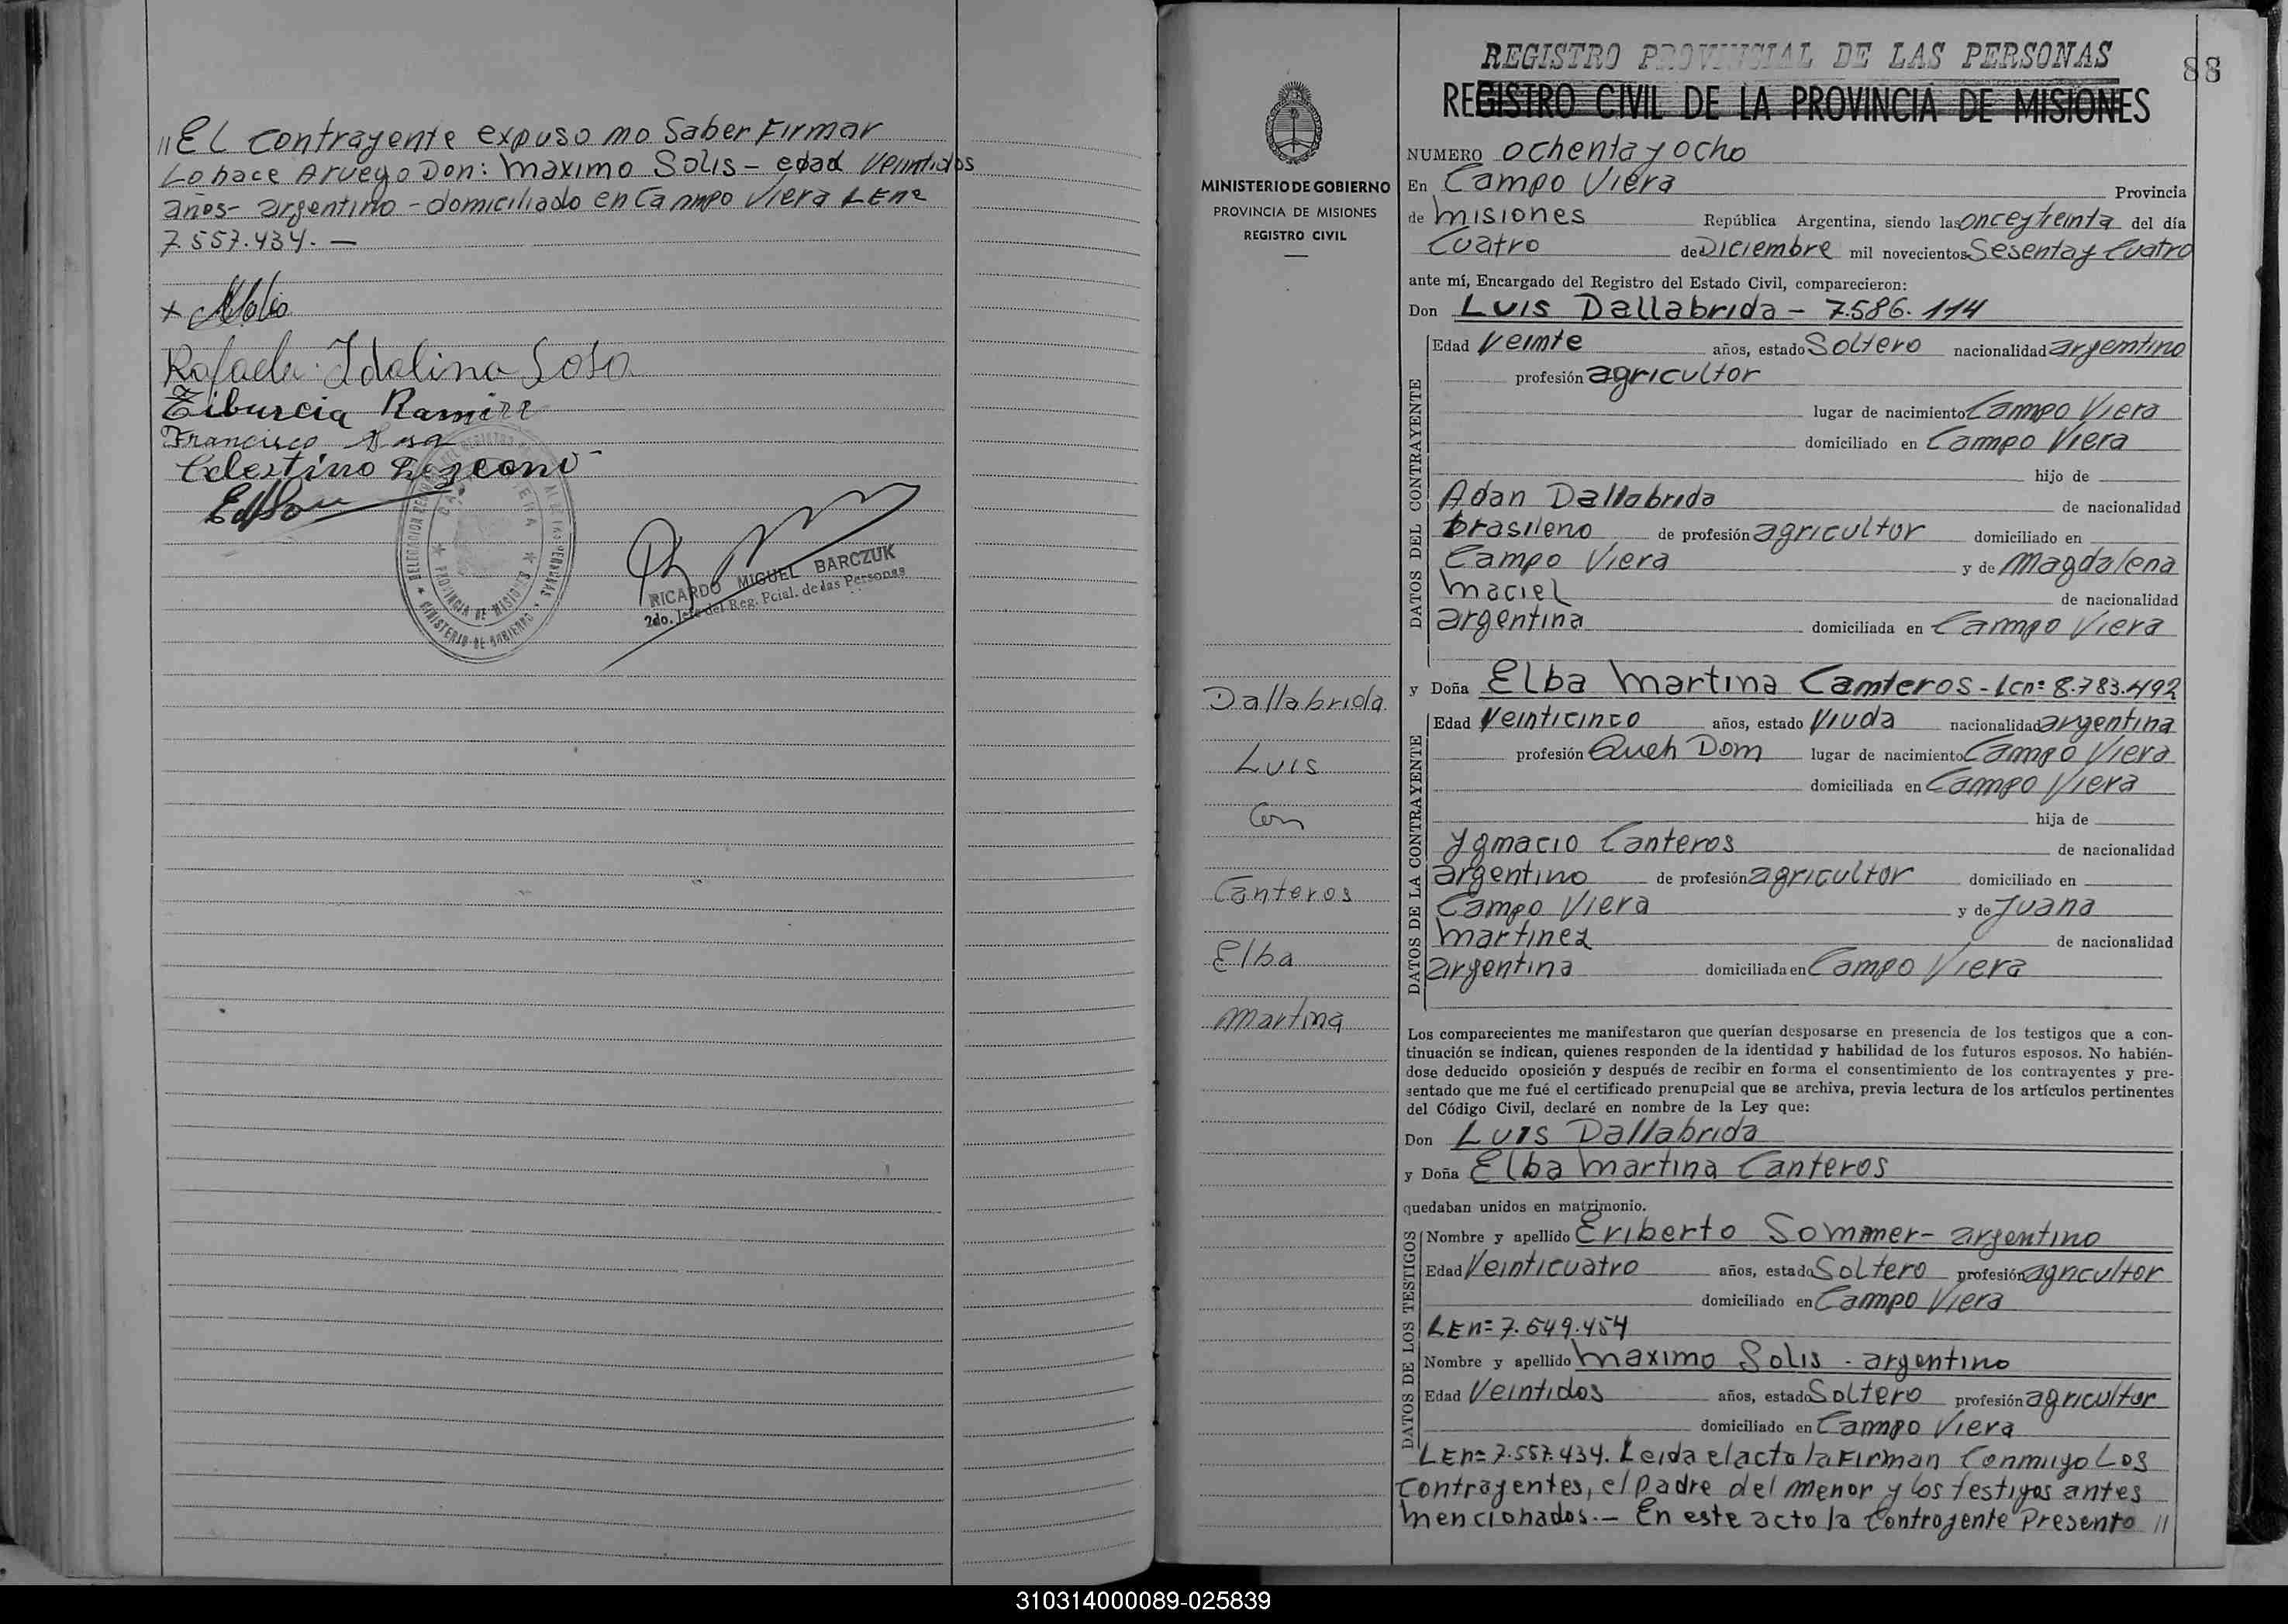 "El contrayente expuso no saber Firmar
Lo hace A ruego Don: Maximo Solis - edad Veintidos
años - argentino - domiciliado en Campo Viera LEnº
7.557.434. —
Rafaela Idalina Sosa
Tiburcia Ramirez
Francisco Sosa
Celestino
RICARDO MIGUEL BARCZUK
2do. Jefe del Reg. Pcial. de las Personas
PROVINCIA DE MISIONES
MINISTERIO DE GOBIERNO
REGISTRO PROVINCIAL DE LAS PERSONAS
88
REGISTRO CIVIL DE LA PROVINCIA DE MISIONES
MINISTERIO DE GOBIERNO
PROVINCIA DE MISIONES
REGISTRO CIVIL
Dallabrida
Luis
Con
Canteros
Elba
Martina
NUMERO ochenta y ocho
En Campo Viera Provincia
de Misiones República Argentina, siendo las once y treinta del día
Cuatro de Diciembre mil novecientos Sesenta y Cuatro
ante mí, Encargado del Registro del Estado Civil, comparecieron:
Don Luis Dallabrida - 7.586.114
DATOS DEL CONTRAYENTE
Edad Veinte años, estado Soltero nacionalidad argentino
profesión agricultor
lugar de nacimiento Campo Viera
domiciliado en Campo Viera
hijo de
Adan Dallabrida de nacionalidad
brasileno de profesión agricultor domiciliado en
Campo Viera y de Magdalena
Maciel de nacionalidad
argentina domiciliada en Campo Viera
y Doña Elba Martina Canteros - Lcnº 8.783.492
DATOS DE LA CONTRAYENTE
Edad Veinticinco años, estado Viuda nacionalidad argentina
profesión Queh Dom lugar de nacimiento Campo Viera
domiciliada en Campo Viera
hija de
Ygnacio Canteros de nacionalidad
argentino de profesión agricultor domiciliado en
Campo Viera y de Juana
Martinez de nacionalidad
argentina domiciliada en Campo Viera
Los comparecientes me manifestaron que querían desposarse en presencia de los testigos que a con-
tinuación se indican, quienes responden de la identidad y habilidad de los futuros esposos. No habién-
dose deducido oposición y después de recibir en forma el consentimiento de los contrayentes y pre-
sentado que me fué el certificado prenupcial que se archiva, previa lectura de los artículos pertinentes
del Código Civil, declaré en nombre de la Ley que:
Don Luis Dallabrida
y Doña Elba Martina Canteros
quedaban unidos en matrimonio.
DATOS DE LOS TESTIGOS
Nombre y apellido Eriberto Sommer - argentino
Edad Veinticuatro años, estado Soltero profesión agricultor
domiciliado en Campo Viera
LEnº 7.649.454
Nombre y apellido Maximo Solis - argentino
Edad Veintidos años, estado Soltero profesión agricultor
domiciliado en Campo Viera
LEnº 7.557.434. Leida el acta la Firman Conmigo Los
Contrayentes, el Padre del menor y los testigos antes
mencionados.- En este acto la Contrayente Presento "
310314000089-025839